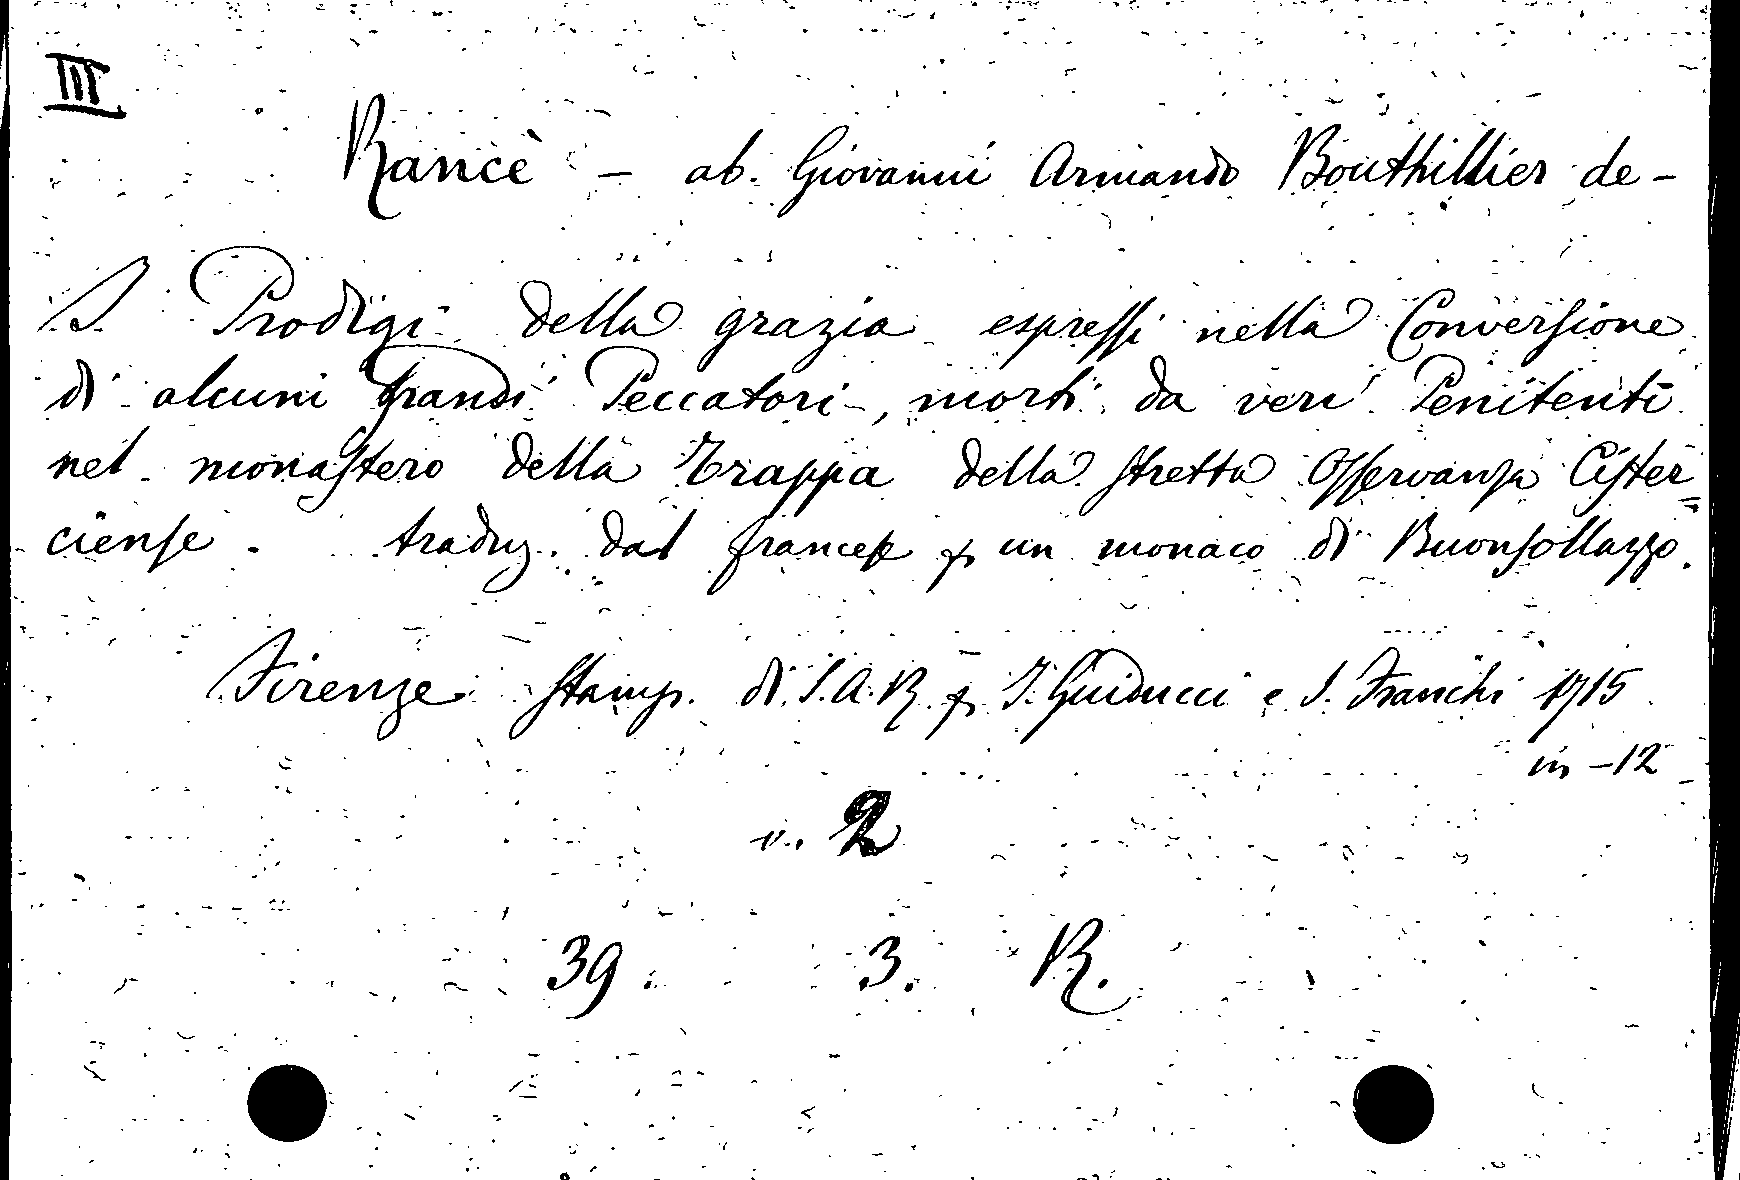 III
Rancè - ab. Giovanni Armando Bouthillier de -
I Prodigi della grazia espressi nella Conversione
di alcuni grandi Peccatori, morti da veri Penitenti
nel monastero della Trappa della stretta Osservanza Cister=
ciense. traduz. dal francese p un monaco di Buonsollazzo.
Firenze stamp. di S. A. R. p J. Guiducci e S. Franchi 1715
in -12
v. 2
39. 3. R.